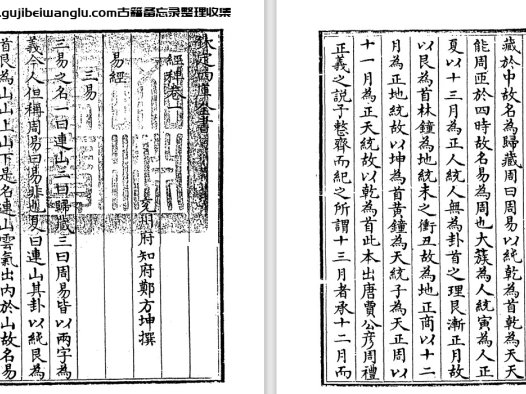 .gujibeiwanglu.com古籍备忘录整理收集
欽定四庫全書
經稗卷一
兗州府知府鄭方坤撰
易經
三易
三易之名一曰連山二曰歸藏三曰周易皆以兩字為
義今人但稱周易曰易非也夏曰連山其卦以純艮為
首艮為山山上山下是名連山雲氣出内於山故名易
藏於中故名為歸藏周曰周易以純乾為首乾為天天
能周匝於四時故名易為周也大蔟為人統寅為人正
夏以十三月為正人統人無為卦首之理艮漸正月故
以艮為首林鐘為地統未之衝丑故為地正商以十二
月為正地統故以坤為首黃鐘為天統子為天正周以
十一月為正天統故以乾為首此本出唐賈公彥周禮
正義之說予整齊而紀之所謂十三月者承十二月而